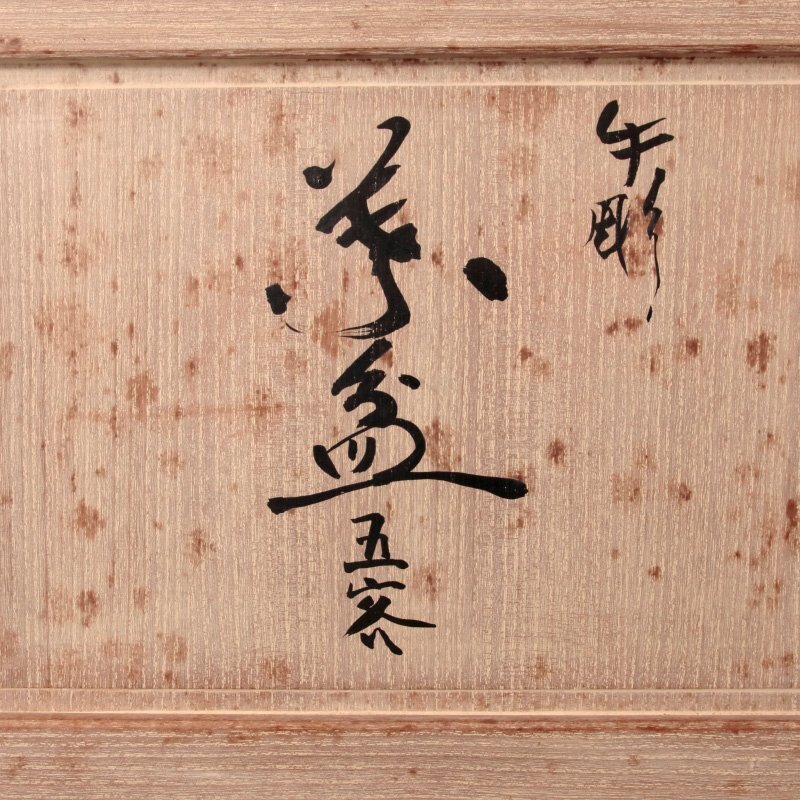 牛彫
茶盆
五客